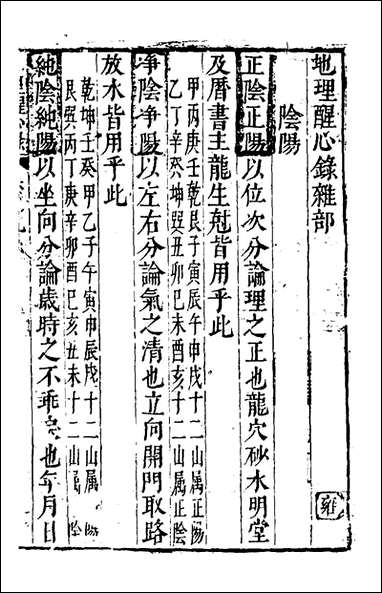 地理醒心錄雜部 雍
陰陽
正陰正陽以位次分論理之正也龍穴砂水明堂
及曆書主龍生尅皆用乎此
甲丙庚壬乾艮子寅辰午申戌十二山属正陽
乙丁辛癸坤巽丑卯巳未酉亥十二山属正陰
净陰净陽以左右分論氣之清也立向開門取路
放水皆用乎此
乾坤壬癸甲乙子午寅申辰戌十二山属陽
艮巽丙丁庚辛卯酉巳亥丑未十二山属陰
純陰純陽以坐向分論歲時之不乖也年月日